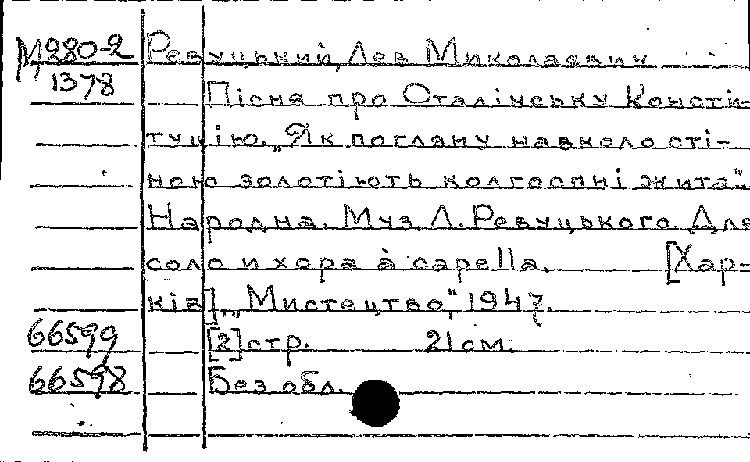 М280-2 Ревуцький, Лев Миколаевич
1378
Пісня про Сталінську Консти-
туцію. „Як погляну навколо сті-
ною золотіють колгоспні жита".
Народна. Муз Л. Ревуцького. Для
соло и хора à capella. [Хар-
ків], „Мистецтво", 1947.
66599 [2] стр. 21 см.
66598 Без обл.